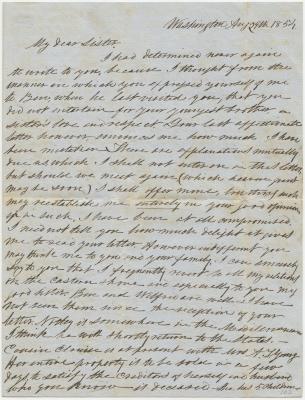 Washington Aug 29th 1854
My dear Sister,
I had determined never again
to write to you, because I thought from the
manner in which you expressed yourself of me
to Ben, when he last visited you, that you
did not entertain for your younger brother a
sister's love and respect. Your last affectionate
letter however convinces me how much I have
been mistaken. There are explanations mutually
due as which I shall not enter on in this letter,
but should we meet again (which heaven grant
may be soon) I shall offer mine, too
may reestablish me entirely in your good opinion
if as such, I have been at all compromised.
I need not tell you how much delight it gives
me to read your letter. However indifferent you
may think me to you and your family, I can
say to you that I frequently revert to all my relatives
on the Eastern shore and especially to you my
good sister, Ben and Wilfred are well - I have
not seen them since the reception of your
letter. Notley is somewhere in the Mediterranean
I think he will shortly return to the States -
Cousin Eloisa is at present with Mrs. Y. Young
Her entire property is to be sold in a few
days to satisfy the creditors of herself and husband
who you know is deceased. She has 5 children